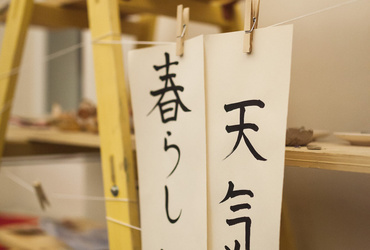 春らし
天気